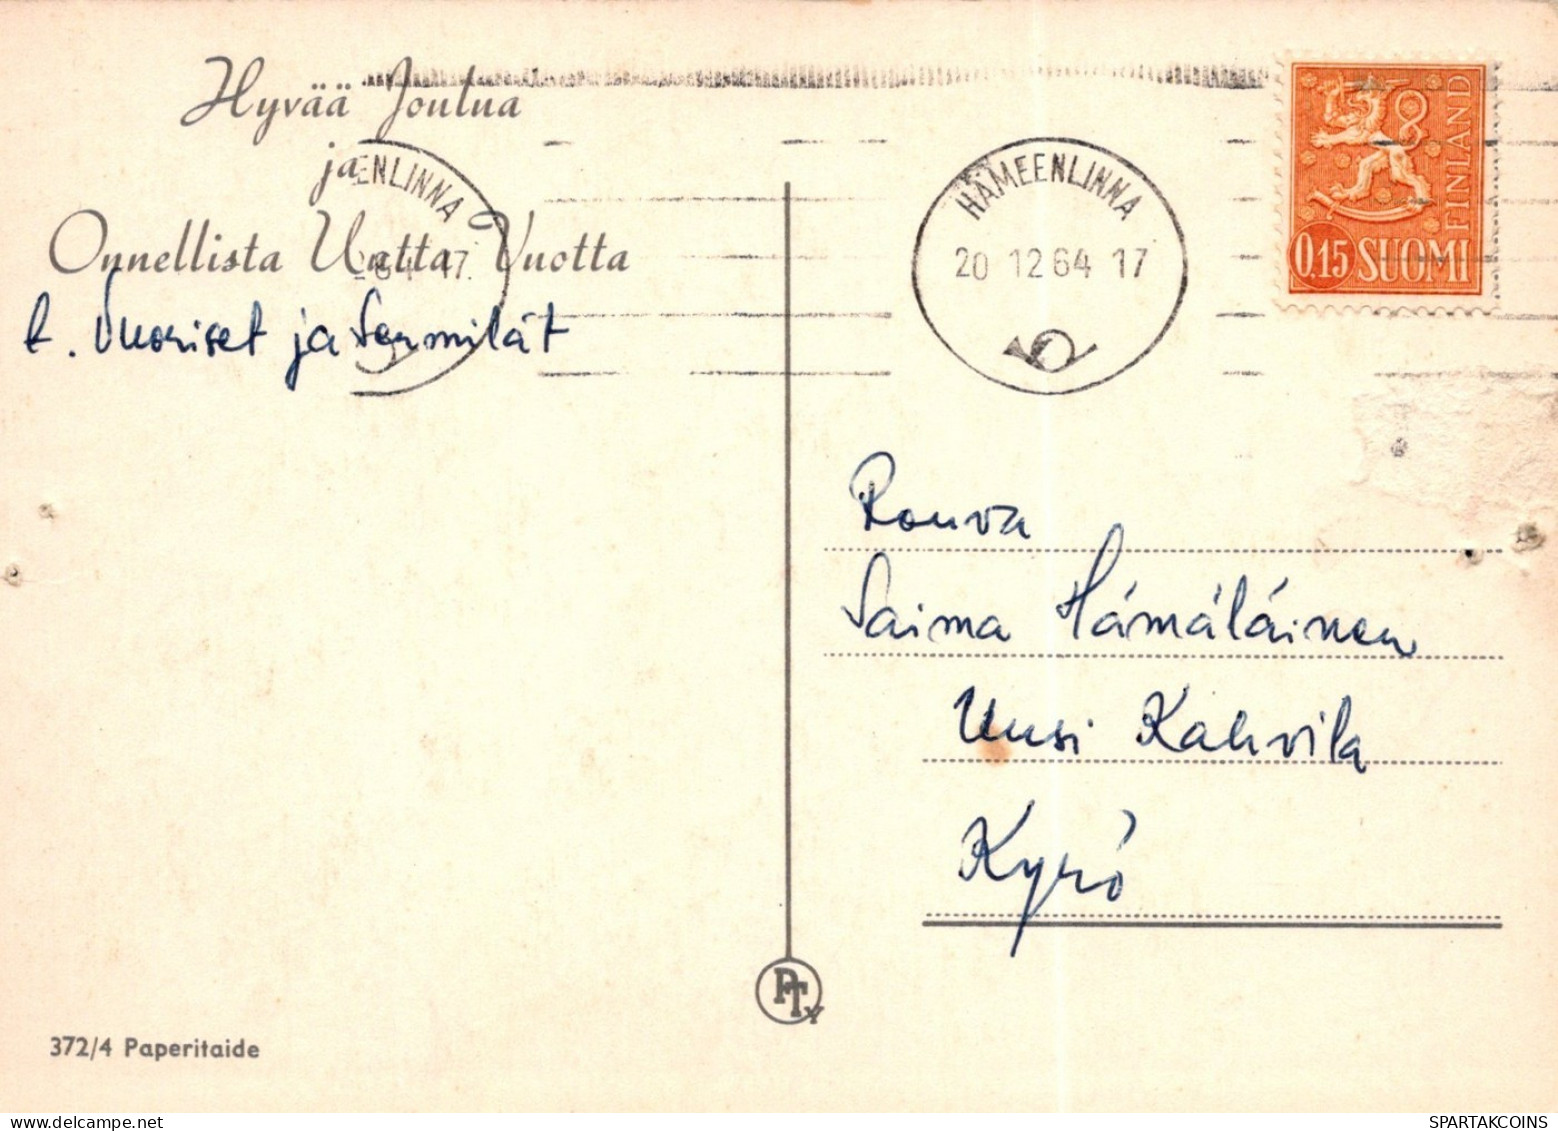 Hyvää Joulua
ja
Onnellista Uutta Vuotta
ENLINNA
64 17
t. Vuoriset ja
HÄMEENLINNA
20 12 64 17
FINLAND
0,15 SUOMI
Rouva
Saima Hämäläinen
Uusi Kahvila
Kyrö
PTy
372/4 Paperitaide
SPARTAKCOINS